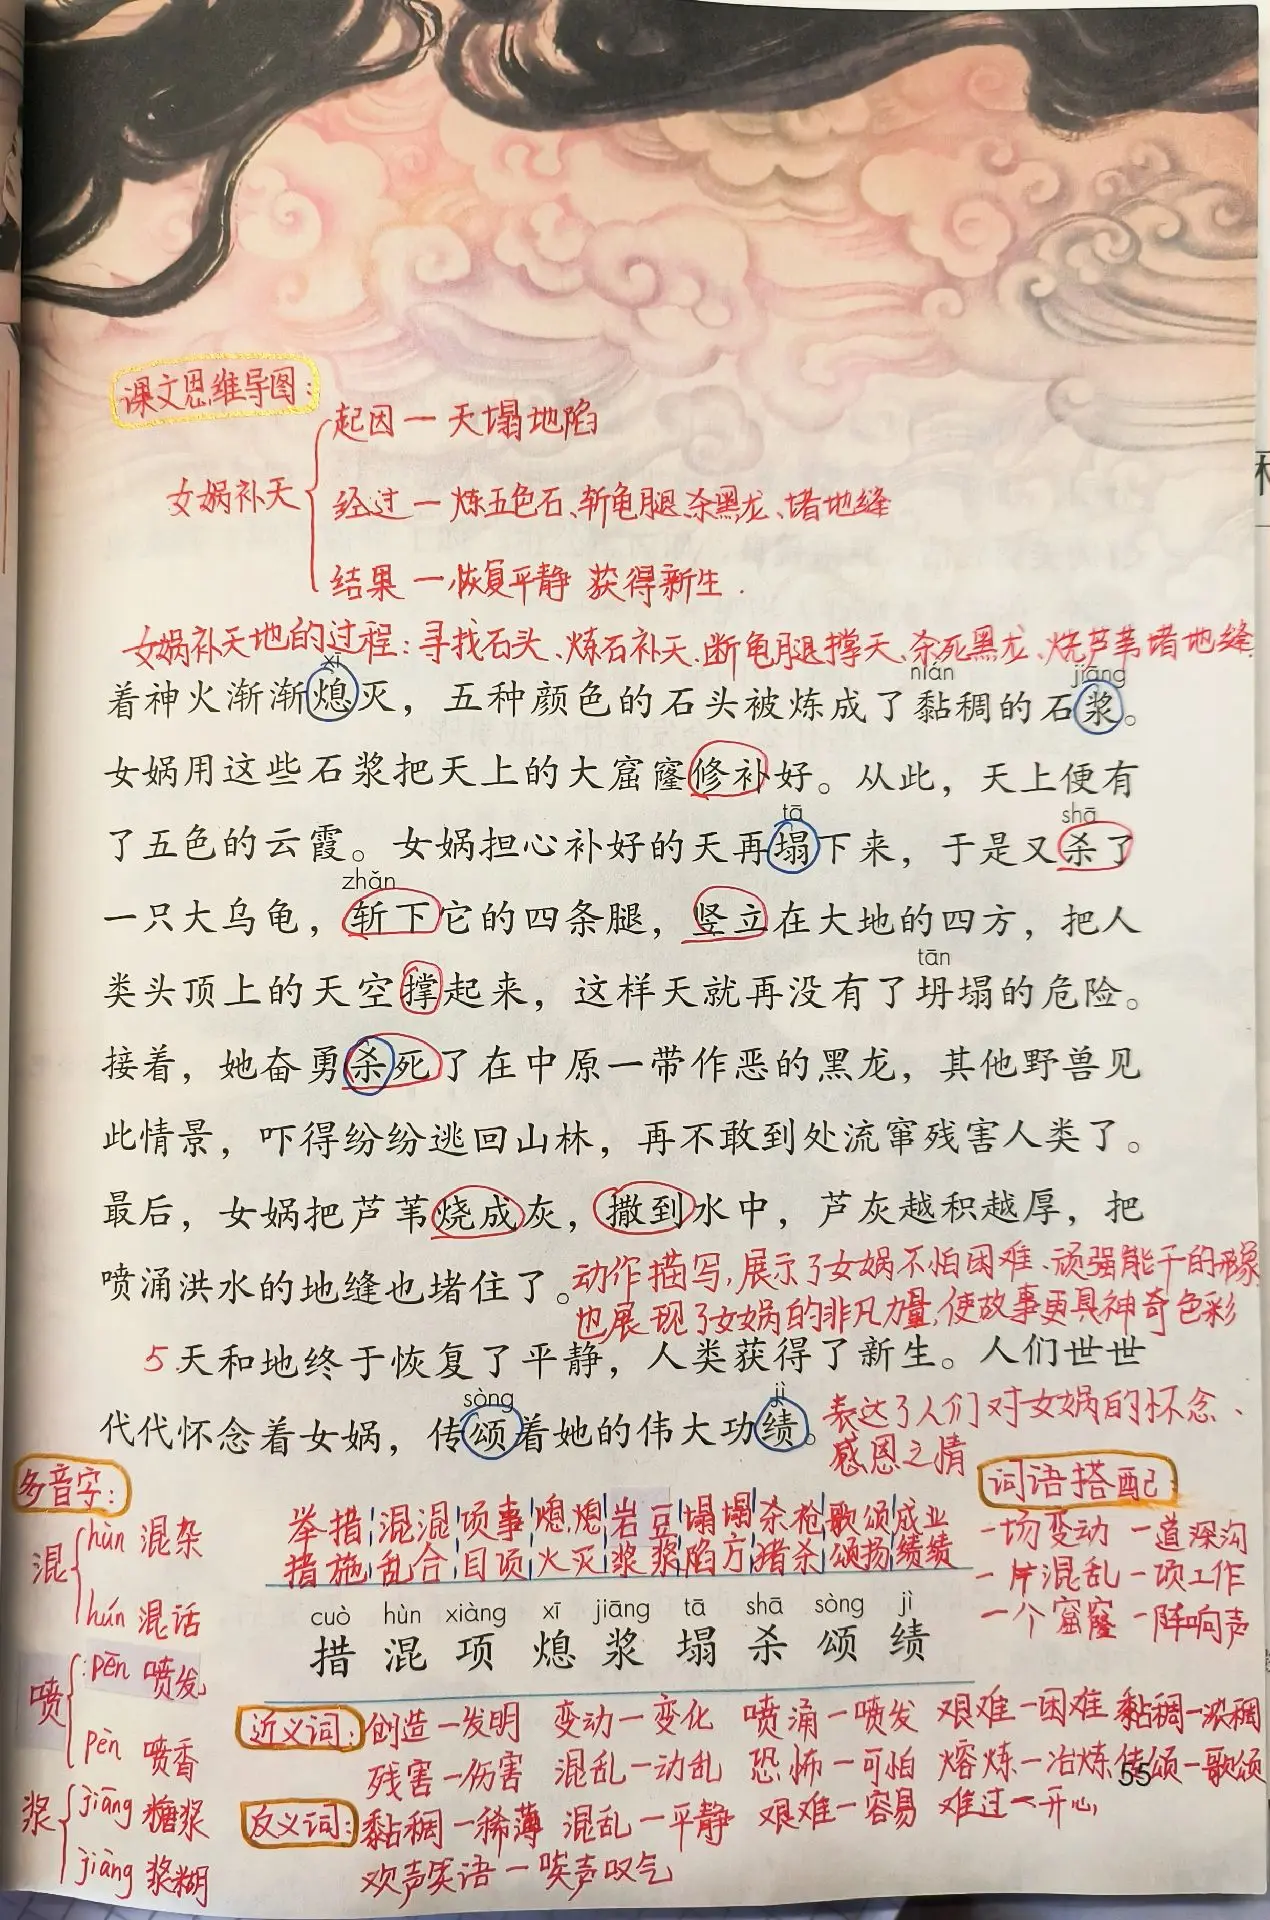 课文思维导图：
起因一天塌地陷
女娲补天
经过一炼五色石、斩龟腿、杀黑龙、堵地缝
结果一恢复平静 获得新生.
女娲补天地的过程：寻找石头、炼石补天、断龟腿撑天、杀死黑龙、烧芦苇堵地缝
xī nián jiāng
着神火渐渐熄灭，五种颜色的石头被炼成了黏稠的石浆。
女娲用这些石浆把天上的大窟窿修补好。从此，天上便有
tā shā
了五色的云霞。女娲担心补好的天再塌下来，于是又杀了
zhǎn
一只大乌龟，斩下它的四条腿，竖立在大地的四方，把人
tān
类头顶上的天空撑起来，这样天就再没有了坍塌的危险。
接着，她奋勇杀死了在中原一带作恶的黑龙，其他野兽见
此情景，吓得纷纷逃回山林，再不敢到处流窜残害人类了。
最后，女娲把芦苇烧成灰，撒到水中，芦灰越积越厚，把
喷涌洪水的地缝也堵住了。
动作描写，展示了女娲不怕困难、顽强能干的形象
也展现了女娲的非凡力量，使故事更具神奇色彩
5 天和地终于恢复了平静，人类获得了新生。人们世世
sòng jì
代代怀念着女娲，传颂着她的伟大功绩。
表达了人们对女娲的怀念、
感恩之情
多音字：
混
hùn 混杂
hún 混话
喷
pēn 喷发
pèn 喷香
浆
jiāng 糖浆
jiàng 浆糊
举措 混混 项事 熄熄 岩豆 塌塌 杀枪 歌颂 成业
措施 乱合 目项 火灭 浆浆 陷方 猪杀 颂扬 绩绩
cuò hùn xiàng xī jiāng tā shā sòng jì
措 混 项 熄 浆 塌 杀 颂 绩
词语搭配
一场变动 一道深沟
一片混乱 一项工作
一个窟窿 一阵响声
近义词：创造一发明 变动一变化 喷涌一喷发 艰难一困难 黏稠一浓稠
残害一伤害 混乱一动乱 恐怖一可怕 熔炼一冶炼 传颂一歌颂
55
反义词：黏稠一稀薄 混乱一平静 艰难一容易 难过一开心
欢声笑语一唉声叹气